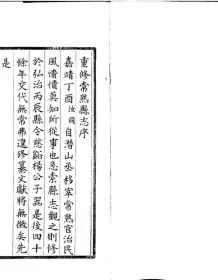 重修常熟縣志序
嘉靖丁酉汝弼自潛山丞移宰常熟官治民
風懵懵莫知所從事也急索縣志觀之則修
於弘治丙辰縣令慈谿楊公子器是後四十
餘年交代無常弗遑修纂文獻將無徵矣先
是